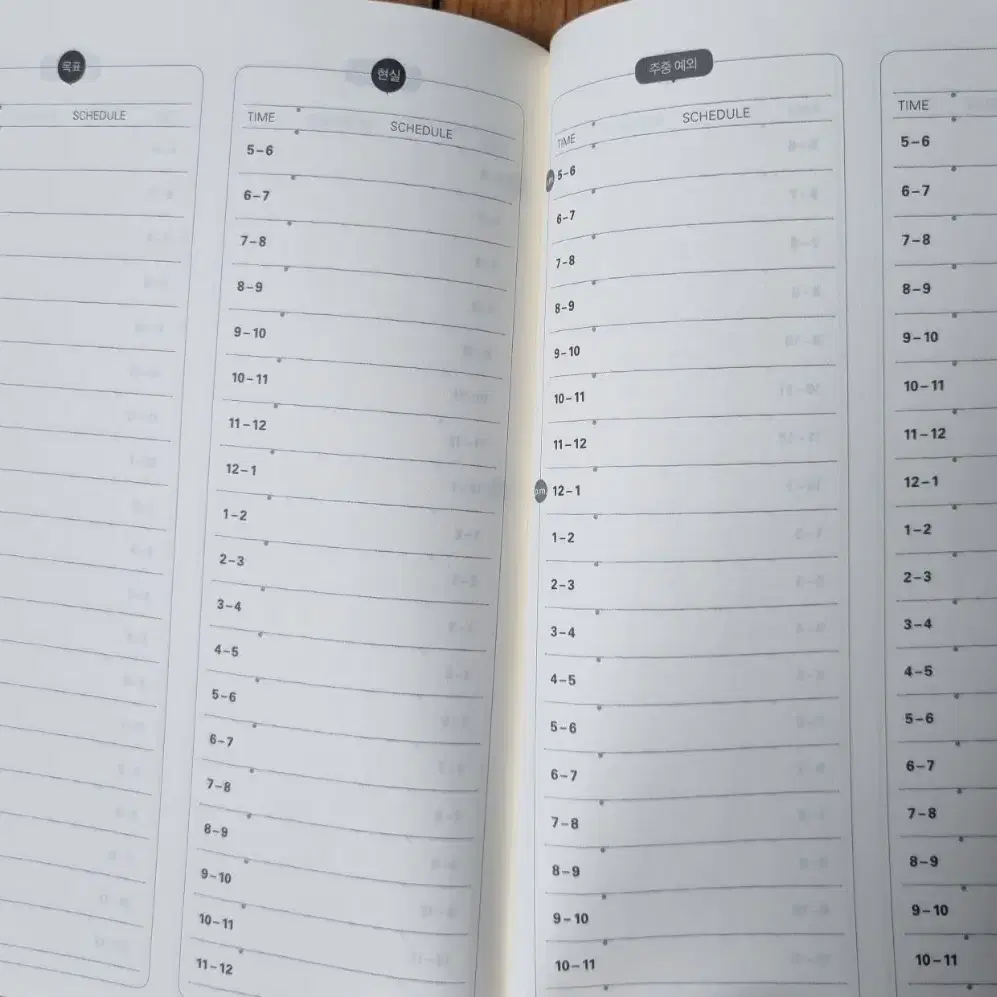 목표
SCHEDULE
현실
TIME SCHEDULE
5-6
6-7
7-8
8-9
9-10
10-11
11-12
12-1
1-2
2-3
3-4
4-5
5-6
6-7
7-8
8-9
9-10
10-11
11-12
주중 예외
TIME SCHEDULE
5-6
6-7
7-8
8-9
9-10
10-11
11-12
p.m. 12-1
1-2
2-3
3-4
4-5
5-6
6-7
7-8
8-9
9-10
10-11
TIME
5-6
6-7
7-8
8-9
9-10
10-11
11-12
12-1
1-2
2-3
3-4
4-5
5-6
6-7
7-8
8-9
9-10
10-11